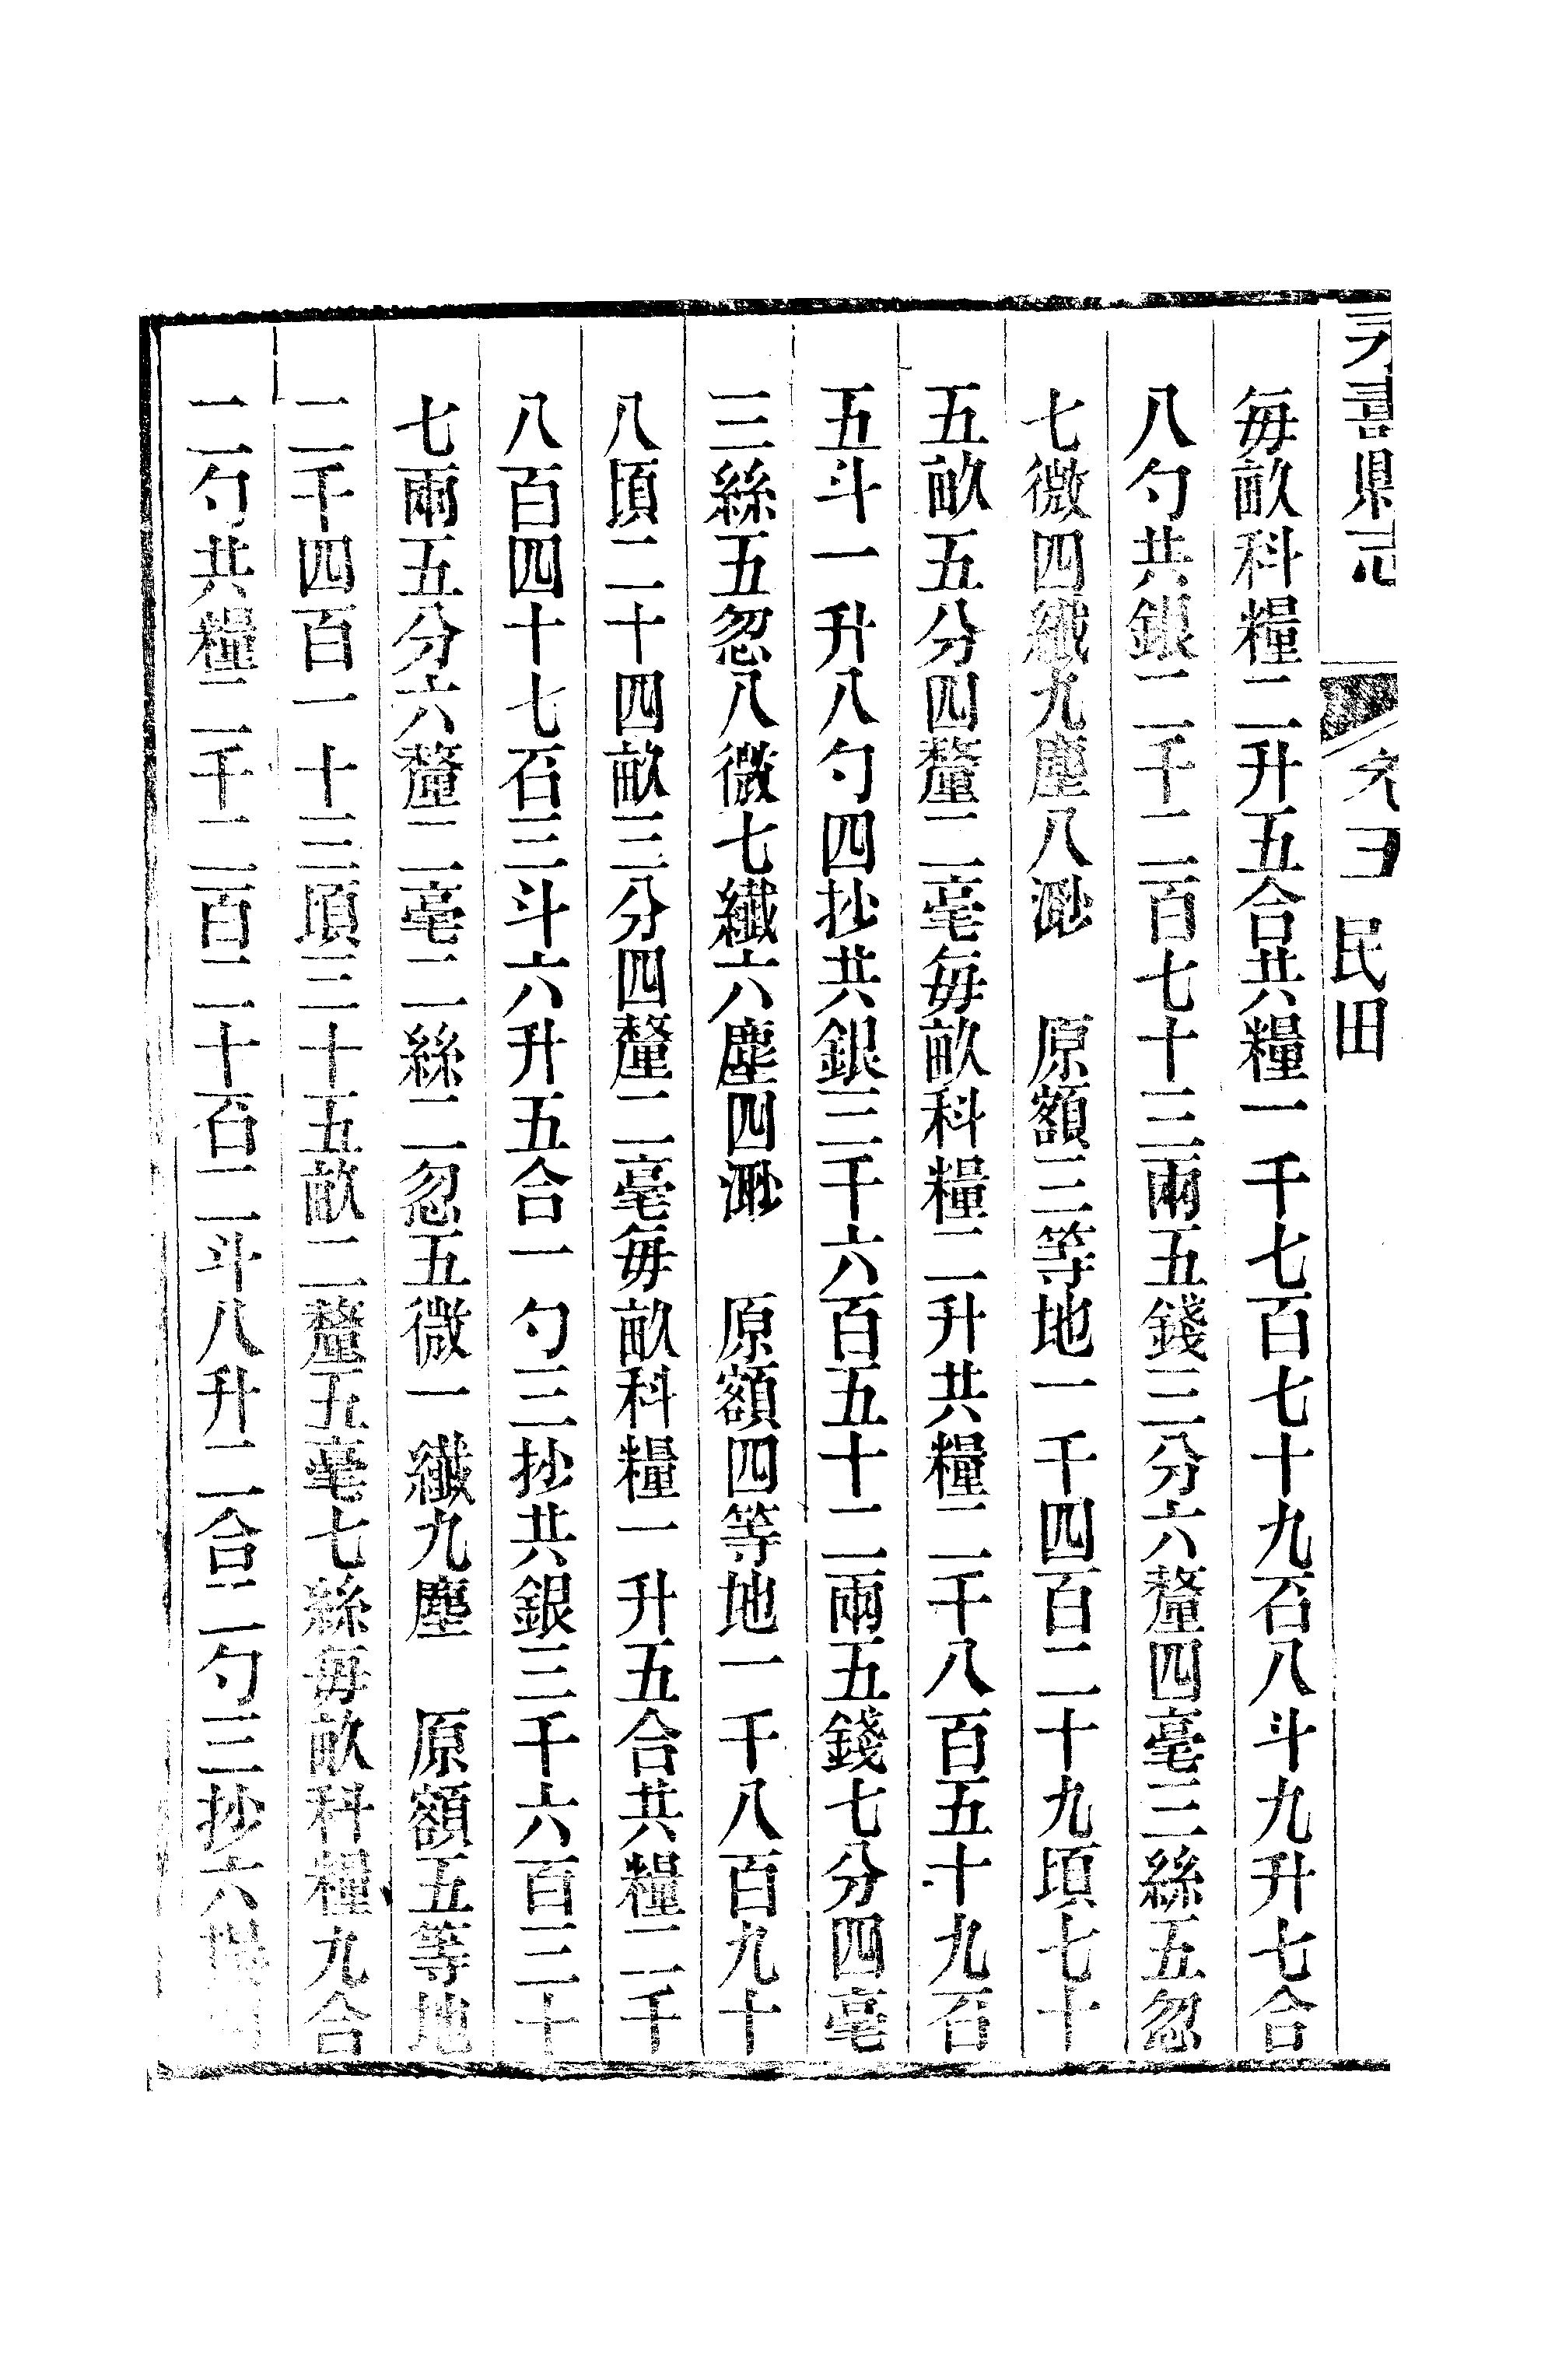 民田
每畝科糧二升五合共糧一千七百七十九石八斗九升七合
八勺共銀二千二百七十三兩五錢三分六釐四毫三絲五忽
七微四纖九塵八渺　原額三等地一千四百二十九頃七十
五畝五分四釐二毫每畝科糧二升共糧二千八百五十九石
五斗一升八勺四抄共銀三千六百五十二兩五錢七分四毫
三絲五忽八微七纖六塵四渺　原額四等地一千八百九十
八頃二十四畝三分四釐二毫每畝科糧一升五合共糧二千
八百四十七石三斗六升五合一勺三抄共銀三千六百三十
七兩五分六釐二毫二絲二忽五微一纖九塵　原額五等地
二千四百一十三頃三十五畝二釐五毫七絲每畝科糧九合
二勺共糧二千二百二十石二斗八升二合二勺三抄六